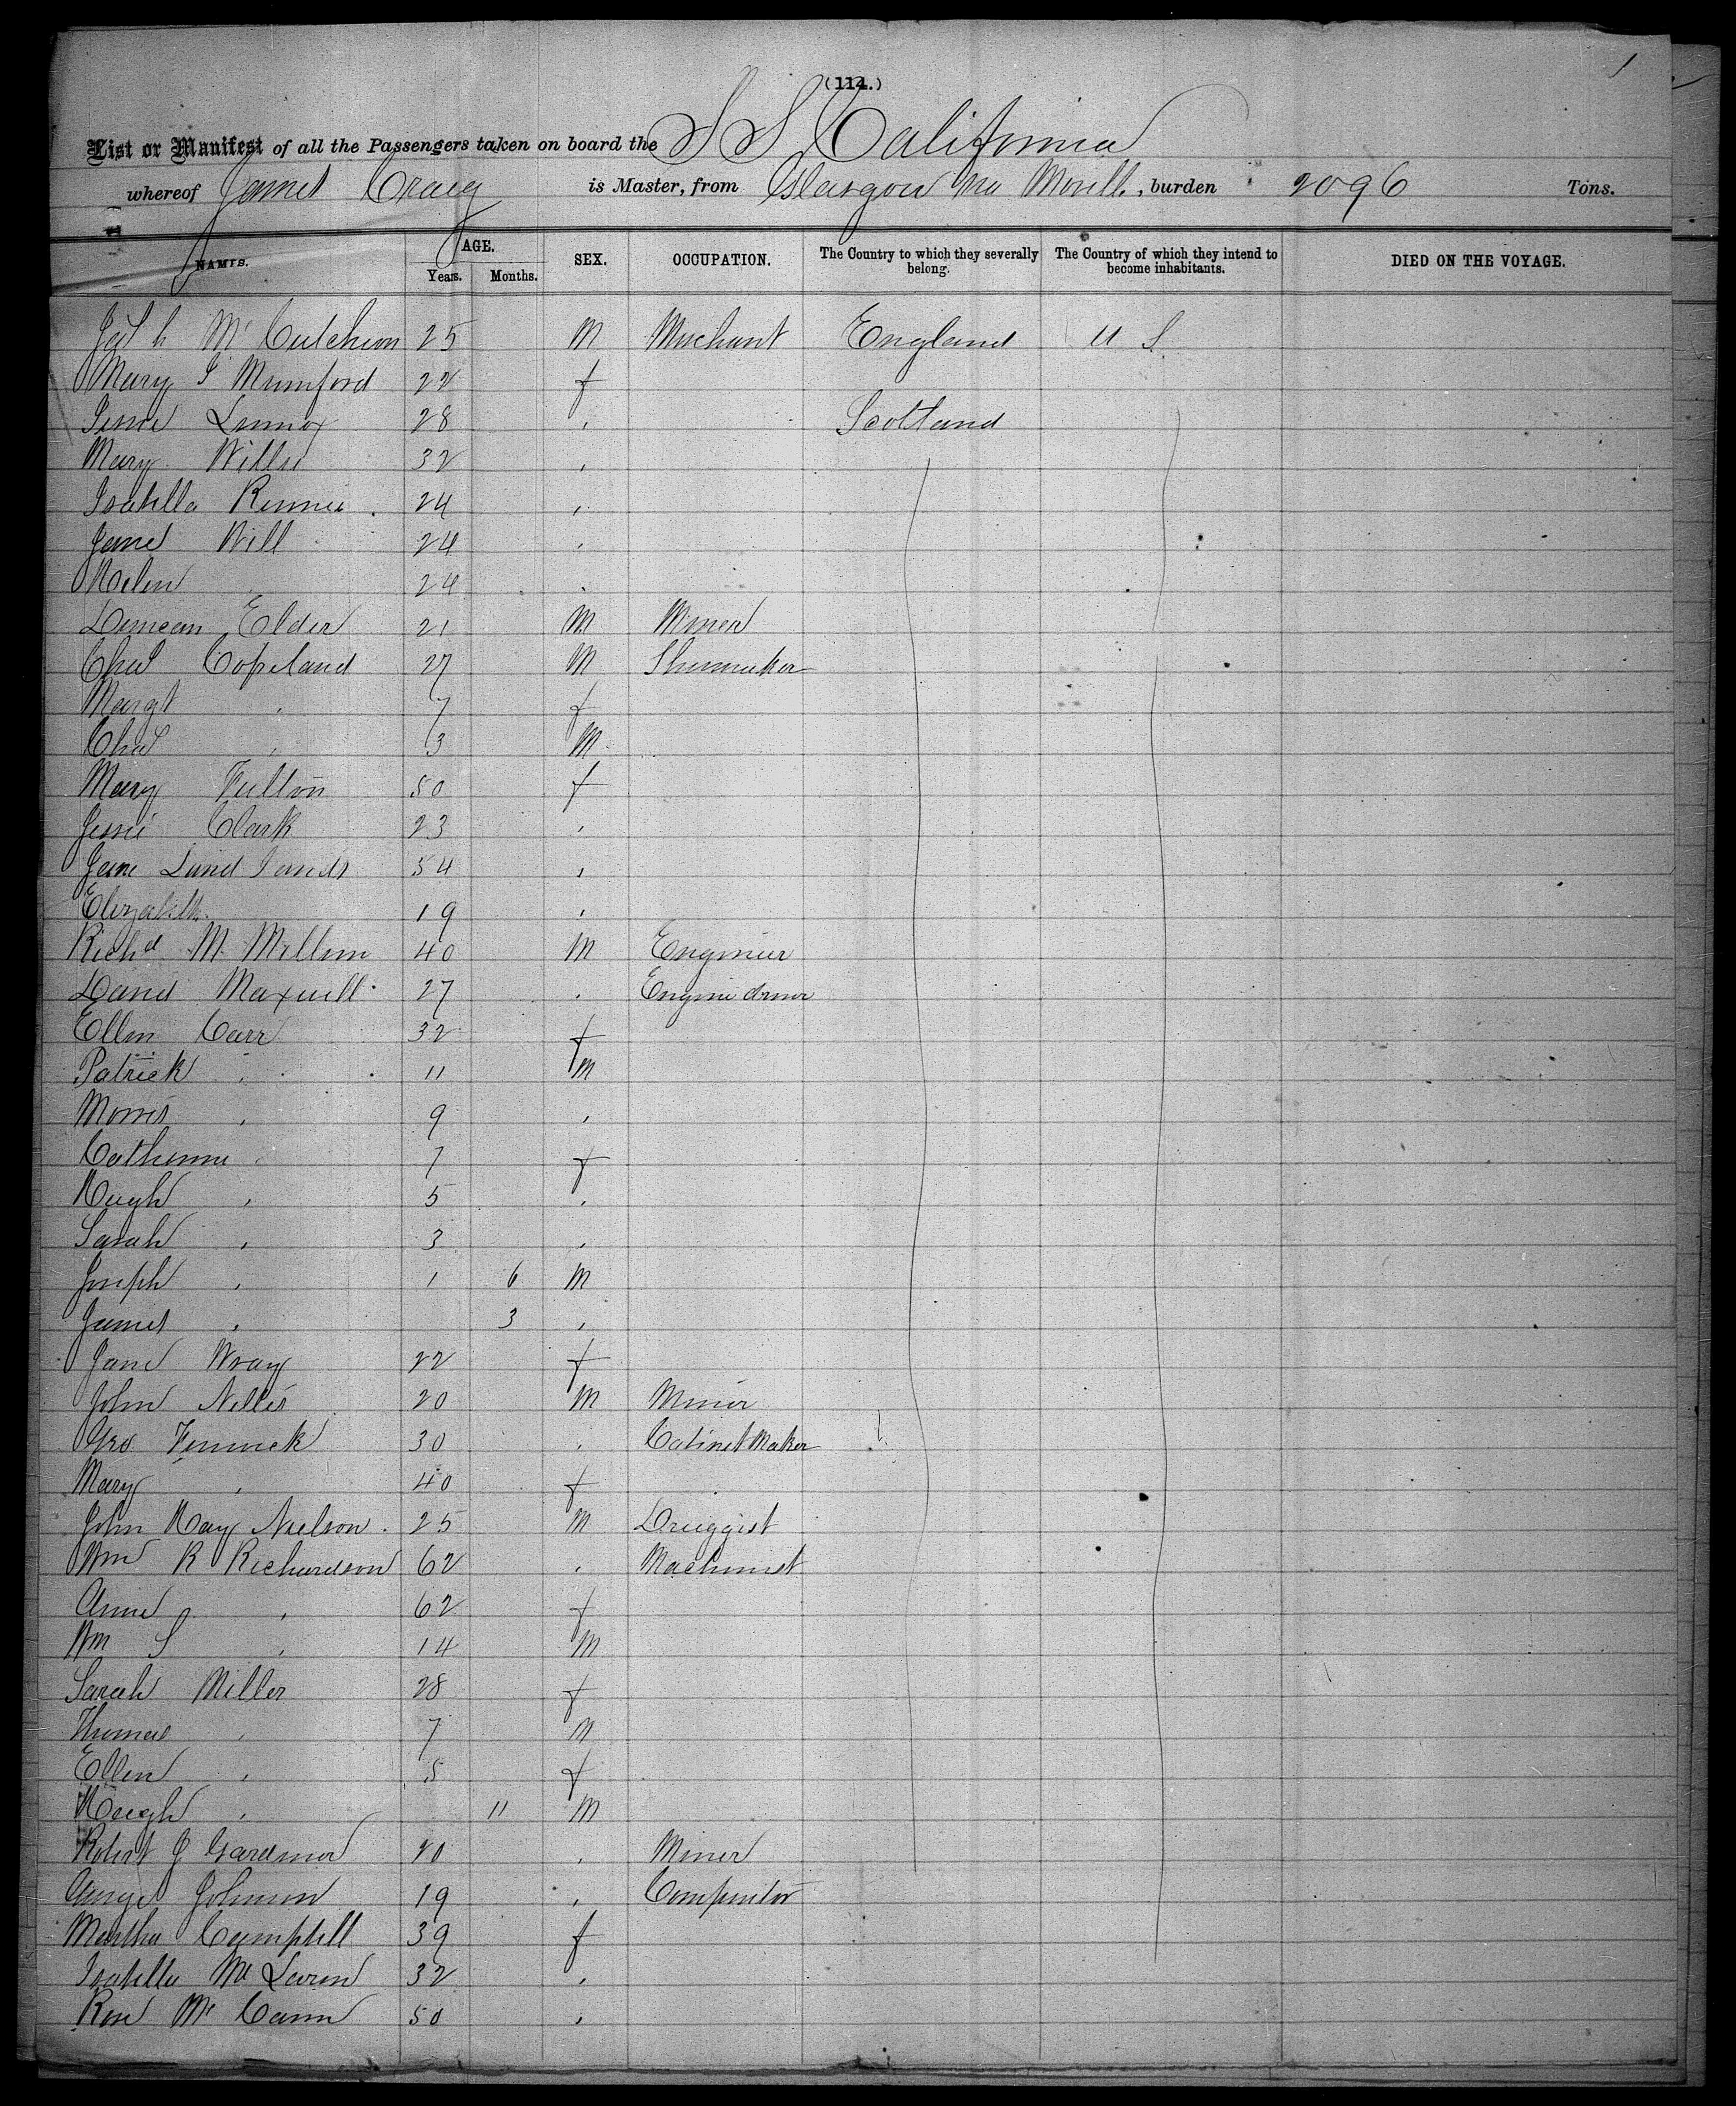 1
(114.)
List or Manifest of all the Passengers taken on board the S S California
whereof James Craig is Master, from Glasgow via Moville, burden 2096 Tons.
NAMES. AGE. Years. Months. SEX. OCCUPATION. The Country to which they severally belong. The Country of which they intend to become inhabitants. DIED ON THE VOYAGE.
Mc Cutcheon 25 M Merchant England U S
Mary Mumford 22 f
Lennox 28 " Scotland
Mary Willis 32 "
Isabella Rennie 24 "
Jane Will 24 "
Helen " 24 "
Duncan Elder 21 M Miner
Chas Copeland 27 M Shoemaker
Margt " 7 f
Chas " 3 M
Mary Fulton 50 f
Jessie Clark 23 "
Jane 54 "
Elizabeth 19 "
Richd Mc 40 M Engineer
David Maxwell 27 " Engine driver
Ellen Carr 32 f
Patrick " 11 M
Morris " 9 "
Catherine " 7 f
Hugh " 5 "
Sarah " 3 "
Joseph " 1 6 M
James " 3 "
Jane Wray 22 f
John Nellis 20 M Miner
Geo Fenwick 30 " Cabinet Maker
Mary " 40 f
John Hay Neilson 25 M Druggist
Wm R Richardson 62 " Machinist
Anne " 62 f
Wm S " 14 M
Sarah Miller 28 f
Thomas " 7 M
Ellen " 5 f
Hugh " 11 M
Robert J Gardiner 20 " Miner
George Johnson 19 " Compositor
Martha Campbell 39 f
Isabella Mc Laren 32 "
Rose Mc Cann 50 "